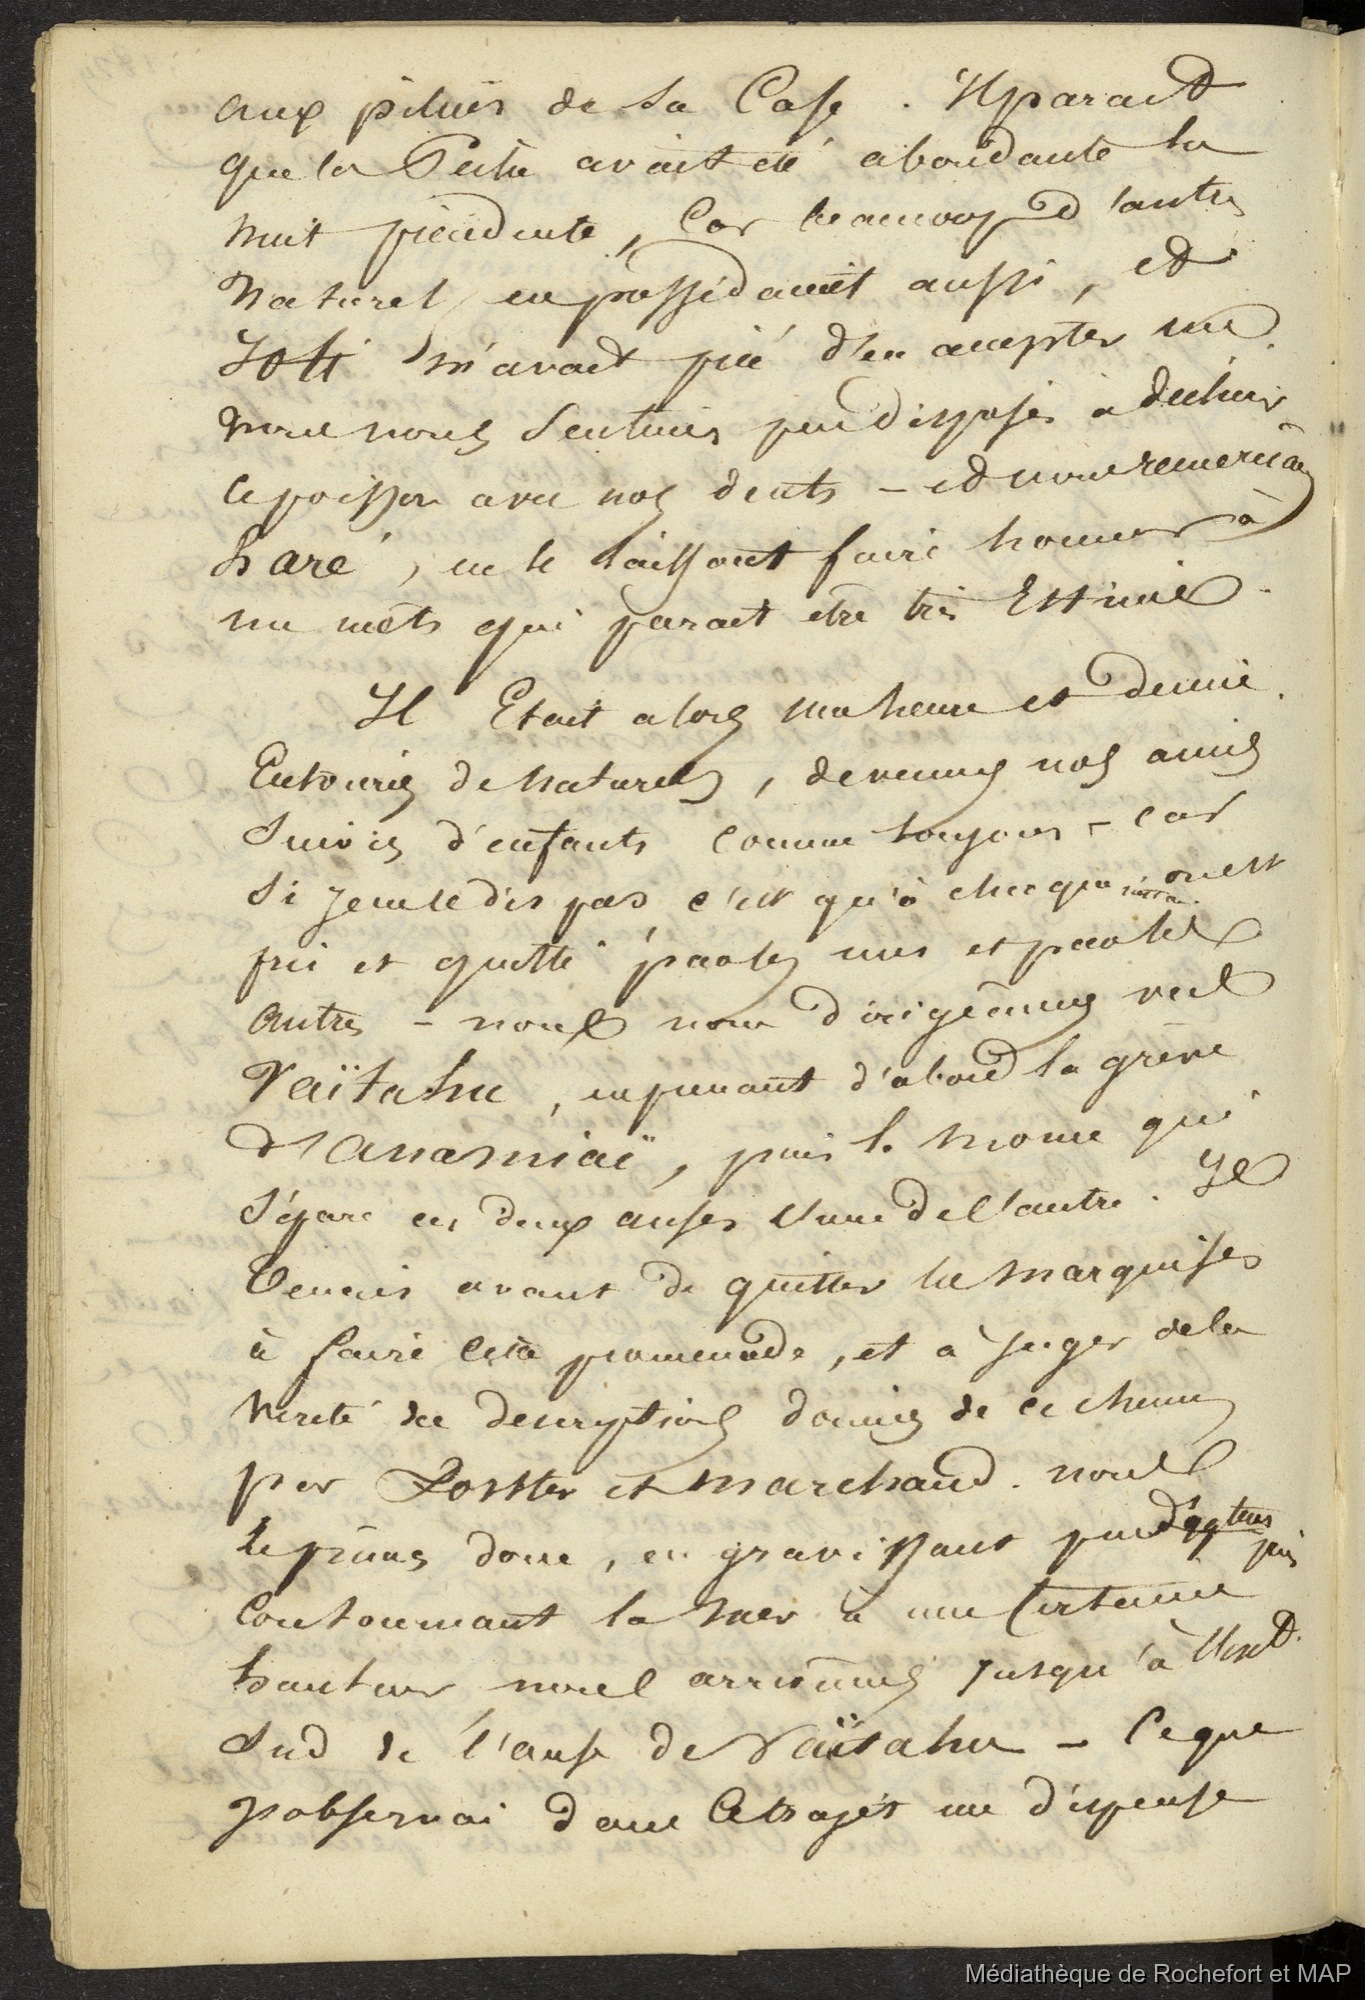 aux piliers de sa Case. Il parait
que la Pêche avait été abondante la
nuit précédente, Car beaucoup d'autres
Naturels en possédaient aussi, et
m'avait prié d'en accepter un.
nous nous sentimes peu disposés à déchirer
ce poisson avec nos dents - et nous remerciames
haré, en le laissant faire honneur à
un mets qui parait etre très Estimé.
Il Etait alors une heure et demie.
Entourés de naturels, devenus nos amis
Suivis d'enfants comme toujours - car
si je ne le dis pas c'est qu'à chaque on est
pris et quitté par les uns et par les
autres - nous nous dirigeâmes vers
Vaïtahu, en prenant d'abord la grève
d'anamiaï, puis le morne qui
sépare ces deux anses l'une de l'autre. Je
Tenais avant de quitter les marquises
à faire cette promenade, et à Juger de la
vérité des descriptions données de ce chemin
par Forster et marchand. nous
le primes donc, en gravissant puis
contournant la mer à une certaine
hauteur nous arrivâmes jusqu'à
Sud de l'anse de Vaïtahu - Ce que
j'observai dans ce trajet me dispense
Médiathèque de Rochefort et MAP